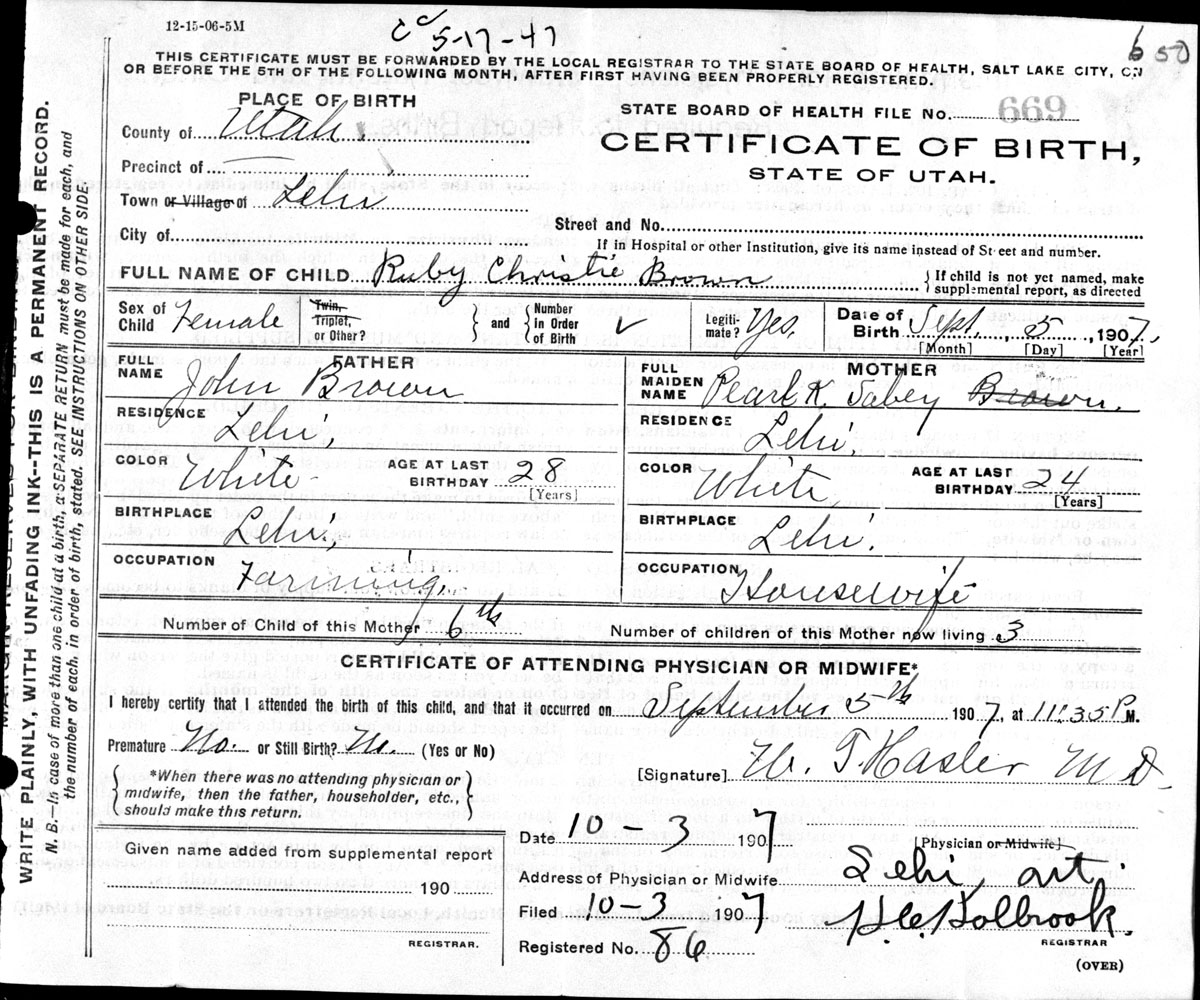 12-15-06-5M
cc 5-17-47
650
THIS CERTIFICATE MUST BE FORWARDED BY THE LOCAL REGISTRAR TO THE STATE BOARD OF HEALTH, SALT LAKE CITY, ON
OR BEFORE THE 5TH OF THE FOLLOWING MONTH, AFTER FIRST HAVING BEEN PROPERLY REGISTERED.
PLACE OF BIRTH
STATE BOARD OF HEALTH FILE No. 669
County of Utah
CERTIFICATE OF BIRTH,
Precinct of
STATE OF UTAH.
Town or Village of Lehi
Street and No.
City of
If in Hospital or other Institution, give its name instead of Street and number.
FULL NAME OF CHILD Ruby Christie Brown
{ If child is not yet named, make
supplemental report, as directed
Sex of Child Female
Twin, Triplet, or Other? } and { Number in Order of Birth ✓
Legiti-mate? Yes.
Date of Birth Sept. 5, 1907,
[Month] [Day] [Year]
FATHER
FULL NAME John Brown
MOTHER
FULL MAIDEN NAME Pearl K. Sabey Brown.
RESIDENCE Lehi,
RESIDENCE Lehi,
COLOR White AGE AT LAST BIRTHDAY 28 [Years]
COLOR White, AGE AT LAST BIRTHDAY 24 [Years]
BIRTHPLACE Lehi,
BIRTHPLACE Lehi.
OCCUPATION Farming.
OCCUPATION Housewife
Number of Child of this Mother 6th
Number of children of this Mother now living 3
CERTIFICATE OF ATTENDING PHYSICIAN OR MIDWIFE*
I hereby certify that I attended the birth of this child, and that it occurred on September 5th, 1907, at 11:35 P.M.
Premature No. or Still Birth? No. (Yes or No)
*When there was no attending physician or
midwife, then the father, householder, etc.,
should make this return.
[Signature] H. T. Hasler M D.
[Physician or Midwife]
Date 10 3 1907
Given name added from supplemental report
190
REGISTRAR.
Address of Physician or Midwife Lehi,
Filed 10-3 1907 Holbrook.
REGISTRAR
Registered No. 86
(OVER)
WRITE PLAINLY, WITH UNFADING INK--THIS IS A PERMANENT RECORD.
N. B.—In case of more than one child at a birth, a SEPARATE RETURN must be made for each, and
the number of each, in order of birth, stated. SEE INSTRUCTIONS ON OTHER SIDE.